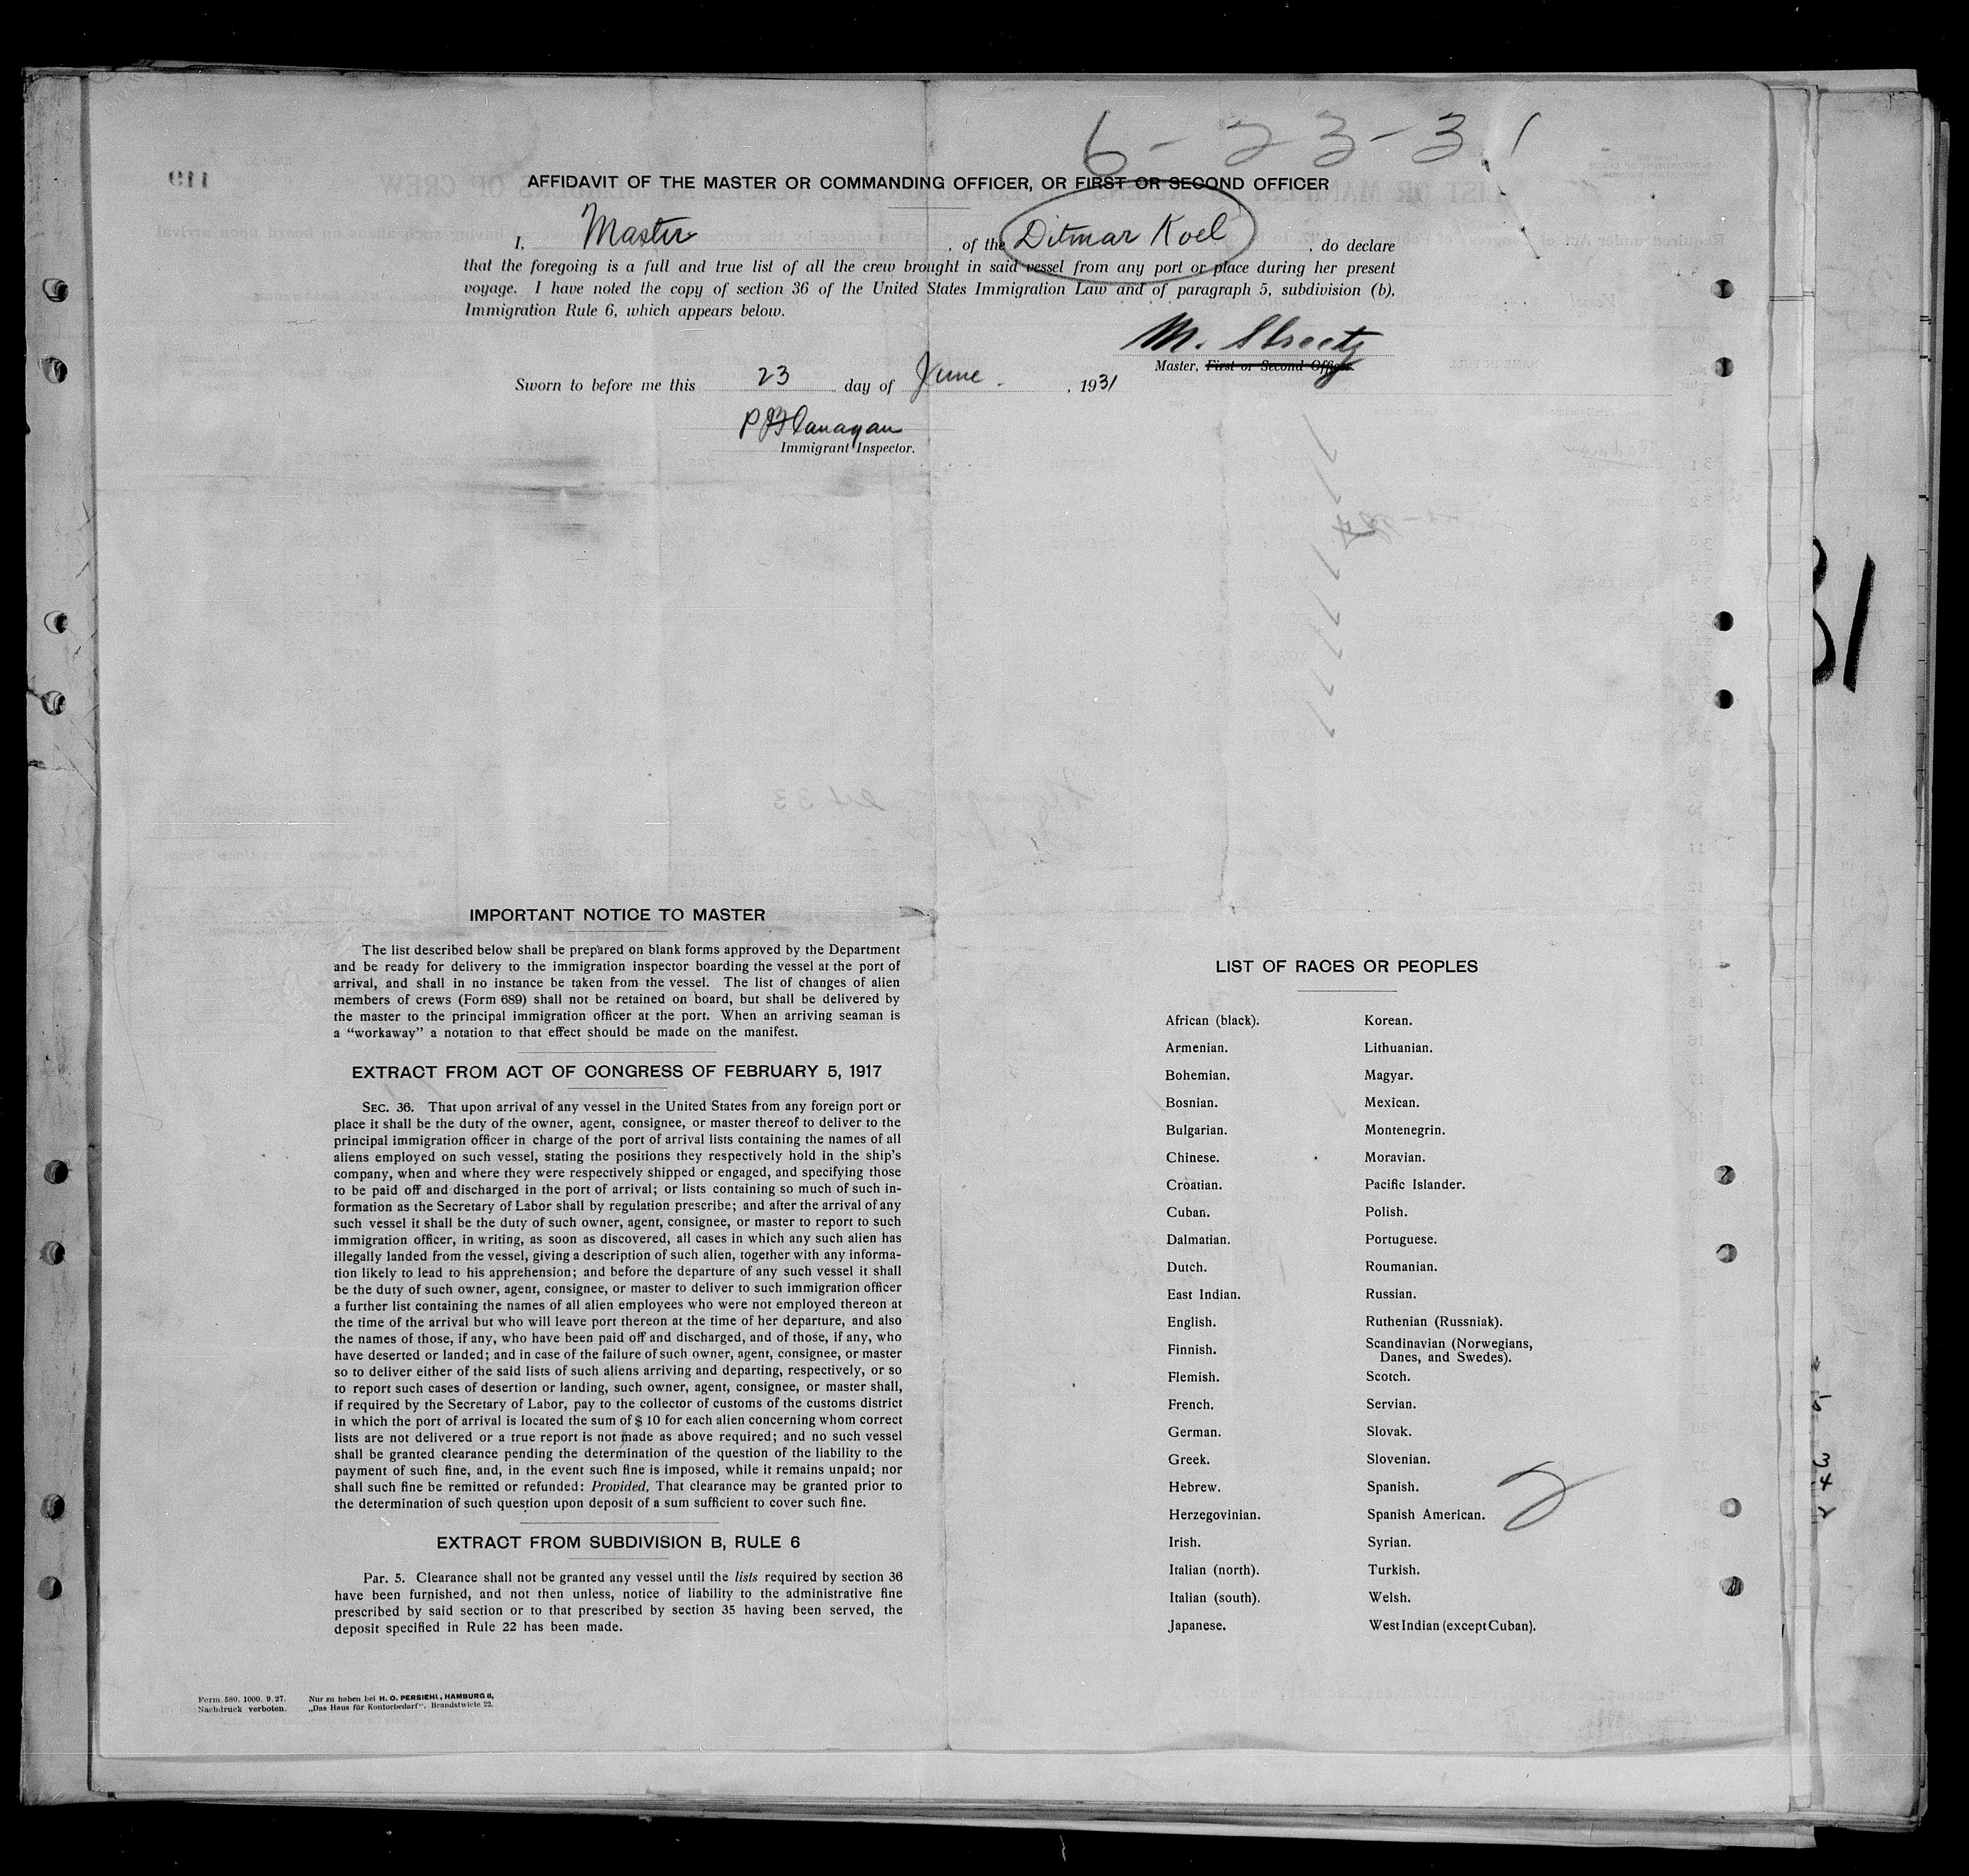 6-23-31
AFFIDAVIT OF THE MASTER OR COMMANDING OFFICER, OR FIRST OR SECOND OFFICER
I, Master, of the Ditmar Koel, do declare
that the foregoing is a full and true list of all the crew brought in said vessel from any port or place during her present
voyage. I have noted the copy of section 36 of the United States Immigration Law and of paragraph 5, subdivision (b),
Immigration Rule 6, which appears below.
M.
Master, First or Second Officer.
Sworn to before me this 23 day of June, 1931
P Flanagan
Immigrant Inspector.
IMPORTANT NOTICE TO MASTER
The list described below shall be prepared on blank forms approved by the Department
and be ready for delivery to the immigration inspector boarding the vessel at the port of
arrival, and shall in no instance be taken from the vessel. The list of changes of alien
members of crews (Form 689) shall not be retained on board, but shall be delivered by
the master to the principal immigration officer at the port. When an arriving seaman is
a “workaway” a notation to that effect should be made on the manifest.
EXTRACT FROM ACT OF CONGRESS OF FEBRUARY 5, 1917
SEC. 36. That upon arrival of any vessel in the United States from any foreign port or
place it shall be the duty of the owner, agent, consignee, or master thereof to deliver to the
principal immigration officer in charge of the port of arrival lists containing the names of all
aliens employed on such vessel, stating the positions they respectively hold in the ship’s
company, when and where they were respectively shipped or engaged, and specifying those
to be paid off and discharged in the port of arrival; or lists containing so much of such in-
formation as the Secretary of Labor shall by regulation prescribe; and after the arrival of any
such vessel it shall be the duty of such owner, agent, consignee, or master to report to such
immigration officer, in writing, as soon as discovered, all cases in which any such alien has
illegally landed from the vessel, giving a description of such alien, together with any informa-
tion likely to lead to his apprehension; and before the departure of any such vessel it shall
be the duty of such owner, agent, consignee, or master to deliver to such immigration officer
a further list containing the names of all alien employees who were not employed thereon at
the time of the arrival but who will leave port thereon at the time of her departure, and also
the names of those, if any, who have been paid off and discharged, and of those, if any, who
have deserted or landed; and in case of the failure of such owner, agent, consignee, or master
so to deliver either of the said lists of such aliens arriving and departing, respectively, or so
to report such cases of desertion or landing, such owner, agent, consignee, or master shall,
if required by the Secretary of Labor, pay to the collector of customs of the customs district
in which the port of arrival is located the sum of $ 10 for each alien concerning whom correct
lists are not delivered or a true report is not made as above required; and no such vessel
shall be granted clearance pending the determination of the question of the liability to the
payment of such fine, and, in the event such fine is imposed, while it remains unpaid; nor
shall such fine be remitted or refunded: Provided, That clearance may be granted prior to
the determination of such question upon deposit of a sum sufficient to cover such fine.
EXTRACT FROM SUBDIVISION B, RULE 6
Par. 5. Clearance shall not be granted any vessel until the lists required by section 36
have been furnished, and not then unless, notice of liability to the administrative fine
prescribed by said section or to that prescribed by section 35 having been served, the
deposit specified in Rule 22 has been made.
Form. 580. 1000. 9. 27. Nur zu haben bei H. O. PERSIEHL, HAMBURG 8,
Nachdruck verboten. „Das Haus für Kontorbedarf“. Brandstwiete 22.
LIST OF RACES OR PEOPLES
African (black). Korean.
Armenian. Lithuanian.
Bohemian. Magyar.
Bosnian. Mexican.
Bulgarian. Montenegrin.
Chinese. Moravian.
Croatian. Pacific Islander.
Cuban. Polish.
Dalmatian. Portuguese.
Dutch. Roumanian.
East Indian. Russian.
English. Ruthenian (Russniak).
Finnish. Scandinavian (Norwegians,
Danes, and Swedes).
Flemish. Scotch.
French. Servian.
German. Slovak.
Greek. Slovenian.
Hebrew. Spanish.
Herzegovinian. Spanish American.
2
Irish. Syrian.
Italian (north). Turkish.
Italian (south). Welsh.
Japanese. West Indian (except Cuban).